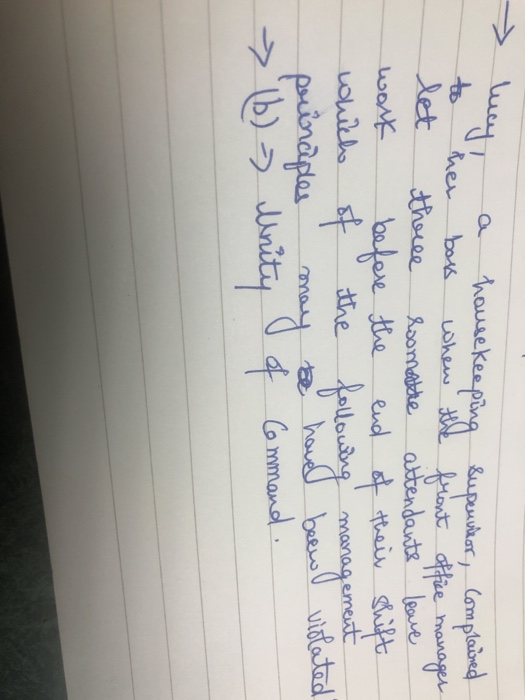 → Lucy, a housekeeping supervisor, complained
to her boss when the front office manager
let three room attendants leave
work before the end of their shift
which of the following management
principles may have been violated
→ (b) → Unity of Command.